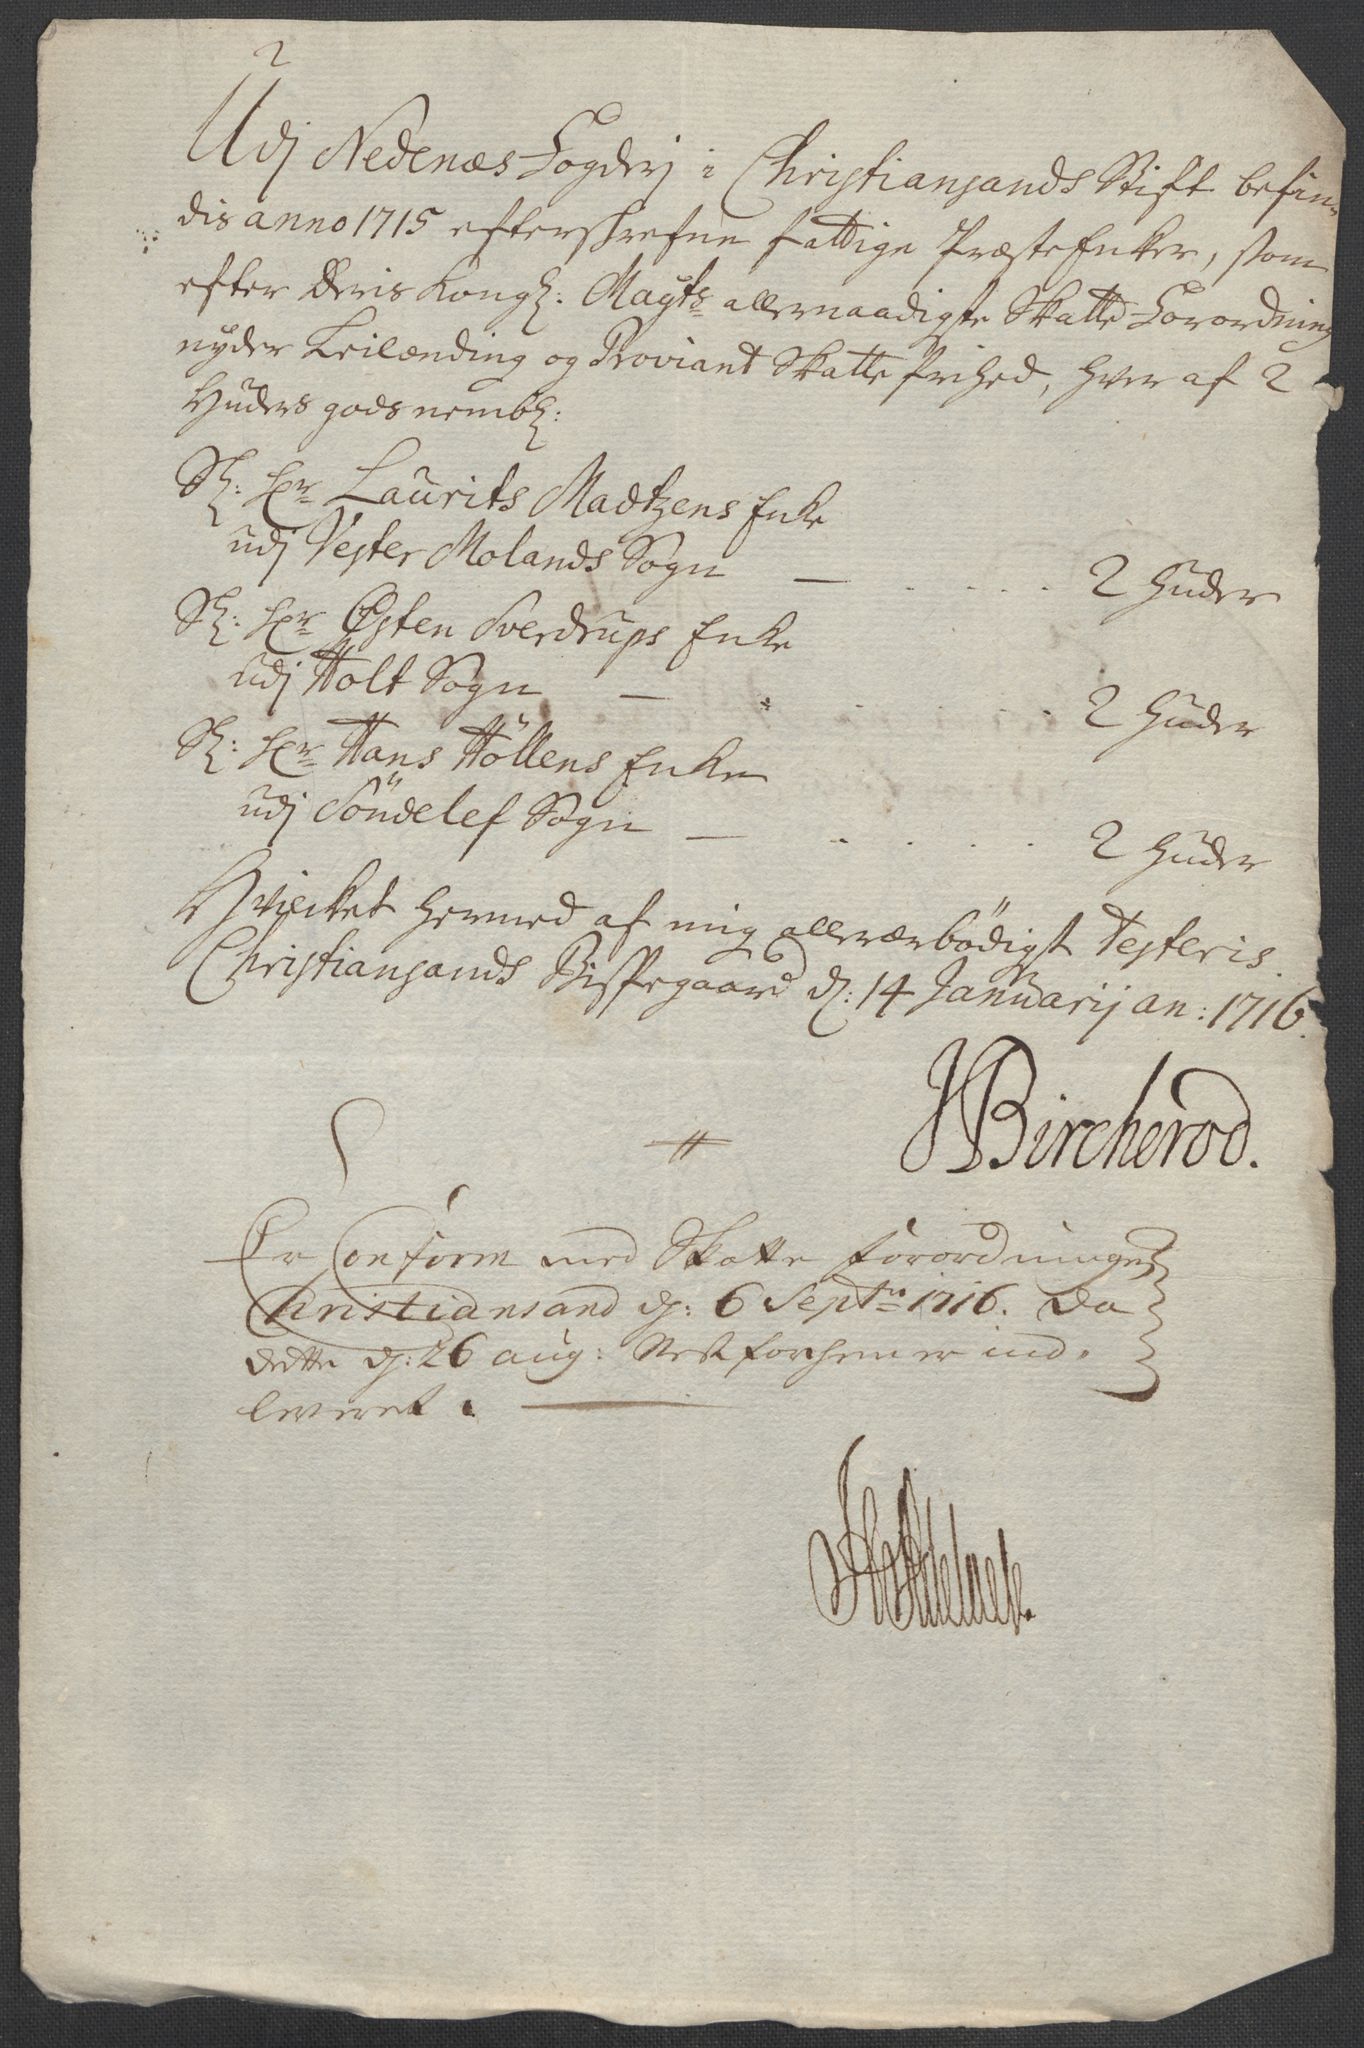 2
Udj Nedenæs Fogderj i Christiansands Stift befin-
dis anno 1715 efterskrefne fattige Præste Enker, som
efter Deris Kongl: Mayts allernaadigste Skatte Forordning
nyder Leilænding og Proviant Skatte frihed, hver af 2
Huders gods nembl:
Sl: Hr Laurits Madtzens Enke
udj Vester Molands Sogn — . . . . 2 Huder
Sl: Hr Østen Sverdrups Enke
udj Holt Sogn — . . . . 2 Huder
Sl: Hr Hans Höllens Enke
udj Söndelef Sogn — . . . . 2 Huder
Hvilcket hermed af mig allerærbödigst Testeris.
Christiansands Bispegaard d: 14 Januarij an: 1716.
JBircherod.
Er Conform med Skatte forordningen
Christiansand d: 6 Septr 1716. Da
dette d: 26 aug: Nest forhen er ind-
leveret.